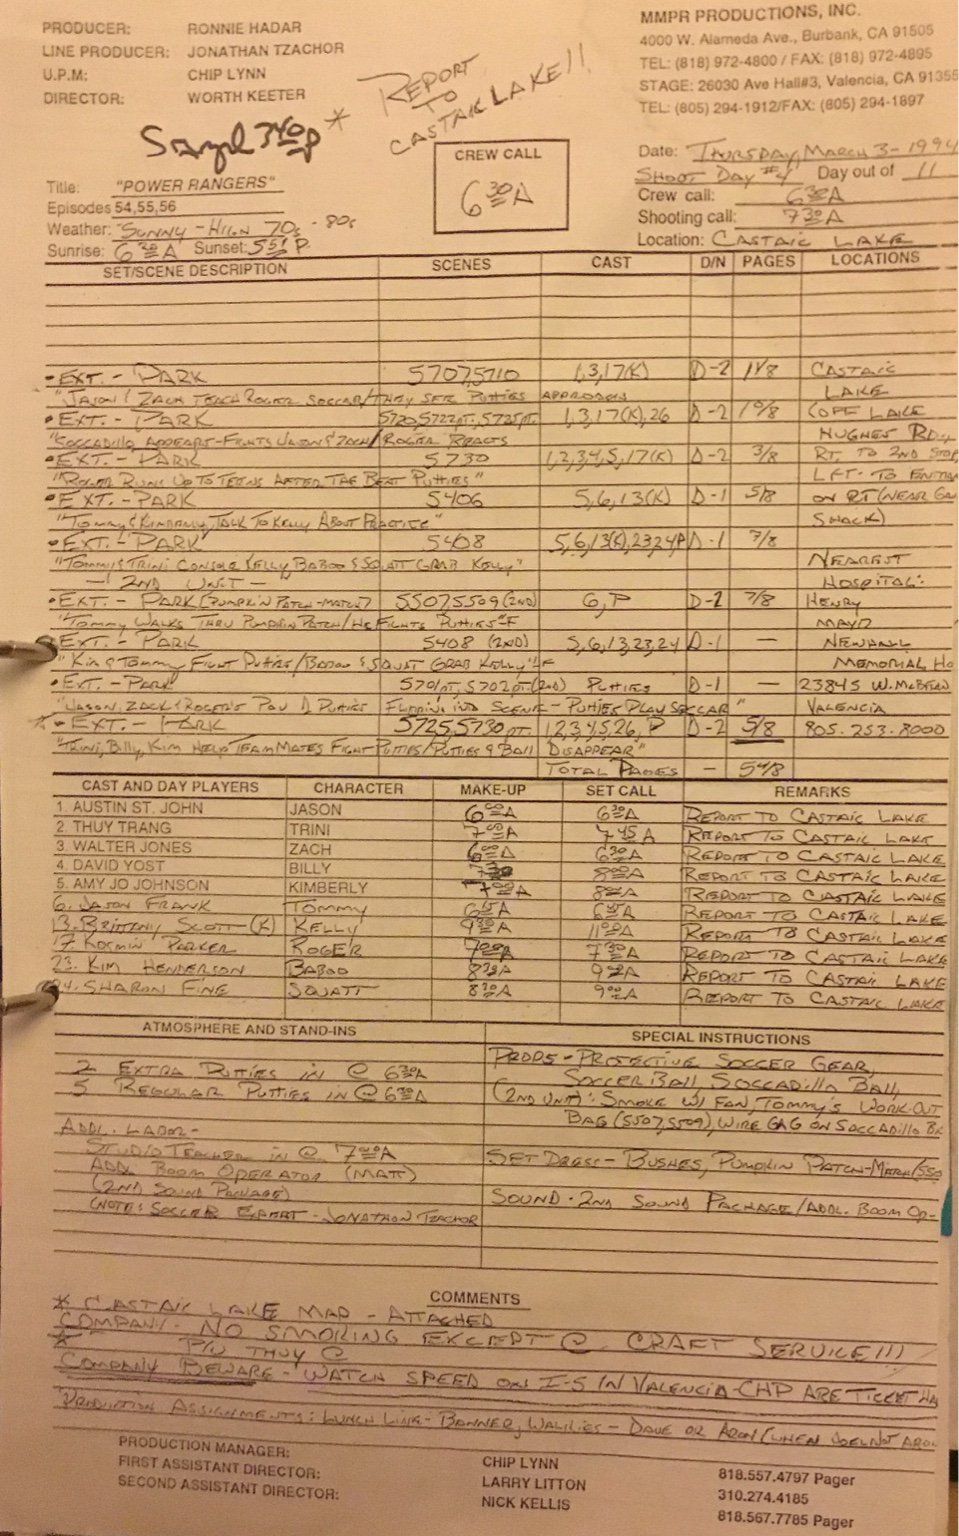 PRODUCER: RONNIE HADAR
LINE PRODUCER: JONATHAN TZACHOR
U.P.M: CHIP LYNN
DIRECTOR: WORTH KEETER
MMPR PRODUCTIONS, INC.
4000 W. Alameda Ave., Burbank, CA 91505
TEL: (818) 972-4800 / FAX: (818) 972-4895
STAGE: 26030 Ave Hall#3, Valencia, CA 91355
TEL: (805) 294-1912/FAX: (805) 294-1897
REPORT
TO
CASTAIC LAKE!!
340p *
CREW CALL
6 30 A
Date: THURSDAY, MARCH 3-1994
SHOOT DAY #4 Day out of 11
Crew call: 6 30 A
Shooting call: 7 30 A
Location: CASTAIC LAKE
Title: "POWER RANGERS"
Episodes 54,55,56
Weather: SUNNY - HIGH 70s - 80s
Sunrise: 6 20 A Sunset: 5 51 P.
SET/SCENE DESCRIPTION SCENES CAST D/N PAGES LOCATIONS
• EXT. - PARK 5707,5710 1,3,17(K) D-2 1 1/8 CASTAIC
"JASON & ZACH TEACH ROGER SOCCER/THEY SEE PUTTIES APPROACH LAKE
• EXT. - PARK 5720,5722pt.,5725pt. 1,3,17(K),26 D-2 COPE LAKE
"SOCCADILLO APPEARS-FIGHTS JASON & ZACH/ROGER REACTS HUGHES RD.
• EXT. - PARK 5730 1,2,3,4,5,17(K) D-2 3/8 RT. TO 2ND STOP
"ROGER RUNS UP TO TEENS AFTER THE BEAT PUTTIES" LFT. TO
• EXT. - PARK 5406 5,6,13(K) D-1 5/8 ON RT (NEAR
"TOMMY & KIMBERLY, TALK TO KELLY ABOUT PRACTICE" SHACK)
• EXT. - PARK 5408 5,6,13(K),23,24P D-1 7/8
"TOMMY & TRINI CONSOLE KELLY BABOO & SQUATT GRAB KELLY" NEAREST
- 2ND UNIT - HOSPITAL:
• EXT. - PARK (PUMPKIN PATCH-MATCH) 5507,5509 (2ND) 6,P D-2 7/8 HENRY
"TOMMY WALKS THRU PUMPKIN PATCH/HE FIGHTS PUTTIES MAYO
EXT. - PARK 5408 (2ND) 5,6,13,23,24 D-1 — NEWHALL
"KIM & TOMMY FIGHT PUTTIES/BABOO & SQUAT GRAB KELLY" MEMORIAL HO
• EXT. - PARK 5701pt, 5702pt (2ND) PUTTIES D-1 — 23845 W. McBEAN
"JASON, ZACK & ROGER'S POV PUTTIES FLIPPING INTO SCENE - PUTTIES PLAY SOCCAR" VALENCIA
* • EXT. - PARK 5725,5730 pt. 1,2,3,4,5,26, P D-2 5/8 805.253.8000
"TRINI, BILLY, KIM HELP TEAM MATES FIGHT PUTTIES/PUTTIES & BALL DISAPPEAR"
TOTAL PAGES - 5 4/8
CAST AND DAY PLAYERS CHARACTER MAKE-UP SET CALL REMARKS
1. AUSTIN ST. JOHN JASON 6 00 A 6 30 A REPORT TO CASTAIC LAKE
2. THUY TRANG TRINI 7 00 A 7 45 A REPORT TO CASTAIC LAKE
3. WALTER JONES ZACH 6 00 A 6 30 A REPORT TO CASTAIC LAKE
4. DAVID YOST BILLY 8 00 A REPORT TO CASTAIC LAKE
5. AMY JO JOHNSON KIMBERLY 7 00 A 8 00 A REPORT TO CASTAIC LAKE
6. JASON FRANK TOMMY 6 15 A 6 45 A REPORT TO CASTAIC LAKE
13. BRITTNY SCOTT (K) KELLY 9 30 A 11 00 A REPORT TO CASTAIC LAKE
17. KORMIN PARKER ROGER 7 00 A 7 30 A REPORT TO CASTAIC LAKE
23. KIM HENDERSON BABOO 8 30 A 9 00 A REPORT TO CASTAIC LAKE
24. SHARON FINE SQUATT 8 30 A 9 00 A REPORT TO CASTAIC LAKE
ATMOSPHERE AND STAND-INS SPECIAL INSTRUCTIONS
PROPS - PROTECTIVE SOCCER GEAR,
2 EXTRA PUTTIES IN @ 6 30 A SOCCER BALL, SOCCADILLO BALL,
5 REGULAR PUTTIES IN @ 6 30 A (2ND UNIT): SMOKE W/ FAN, TOMMY'S WORK-OUT
BAG (5507,5509), WIRE GAG ON SOCCADILLO
ADDL. LABOR -
STUDIO TEACHER IN @ 7 00 A SET DRESS - BUSHES, PUMPKIN PATCH-MATCH/550
ADDL BOOM OPERATOR (MATT)
(2ND SOUND PACKAGE) SOUND - 2ND SOUND PACKAGE/ADDL. BOOM OP-
(NOTE: SOCCER EXPERT - JONATHON TZACHOR
COMMENTS
* CASTAIC LAKE MAP - ATTACHED
COMPANY - NO SMOKING EXCEPT @ CRAFT SERVICE!!!
* P/U THUY @
COMPANY BEWARE - WATCH SPEED ON I-5 IN VALENCIA-CHP ARE TICKET
PRODUCTION ASSIGNMENTS: LUNCH LINK - BANNER, WALKIES - DAVE OR ARON (WHEN DOES NOT
PRODUCTION MANAGER: CHIP LYNN 818.557.4797 Pager
FIRST ASSISTANT DIRECTOR: LARRY LITTON 310.274.4185
SECOND ASSISTANT DIRECTOR: NICK KELLIS 818.567.7785 Pager